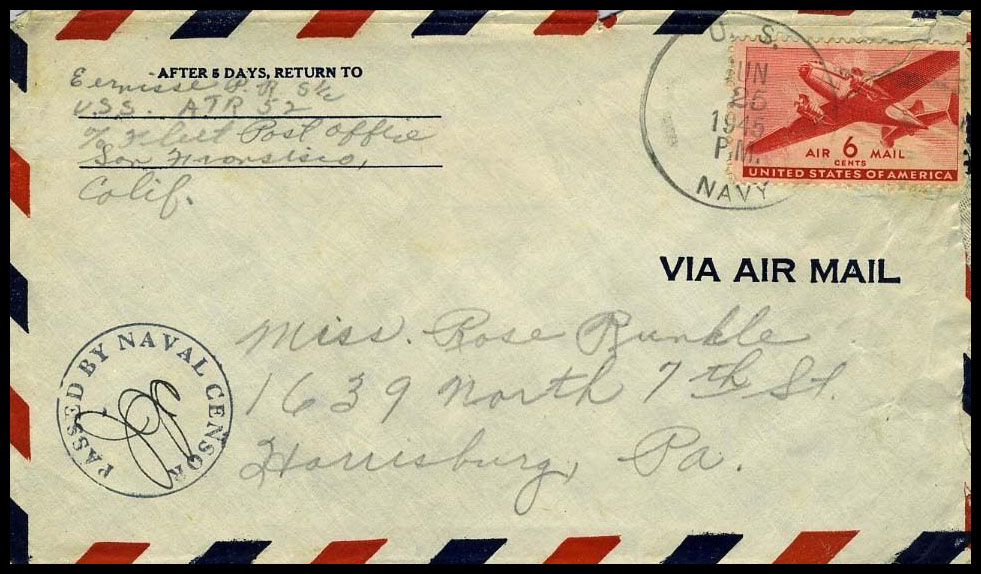 AFTER 5 DAYS, RETURN TO
Eernisse P.R S1/c
U.S.S. ATR 52
c/o Fleet Post Office
San Fransisco,
Colif.
U. S.
JUN
26
1945
P.M.
NAVY
AIR 6 MAIL
CENTS
UNITED STATES OF AMERICA
VIA AIR MAIL
Miss. Rose Runkle
1639 North 7th St.
Harrisburg, Pa.
PASSED BY NAVAL CENSOR